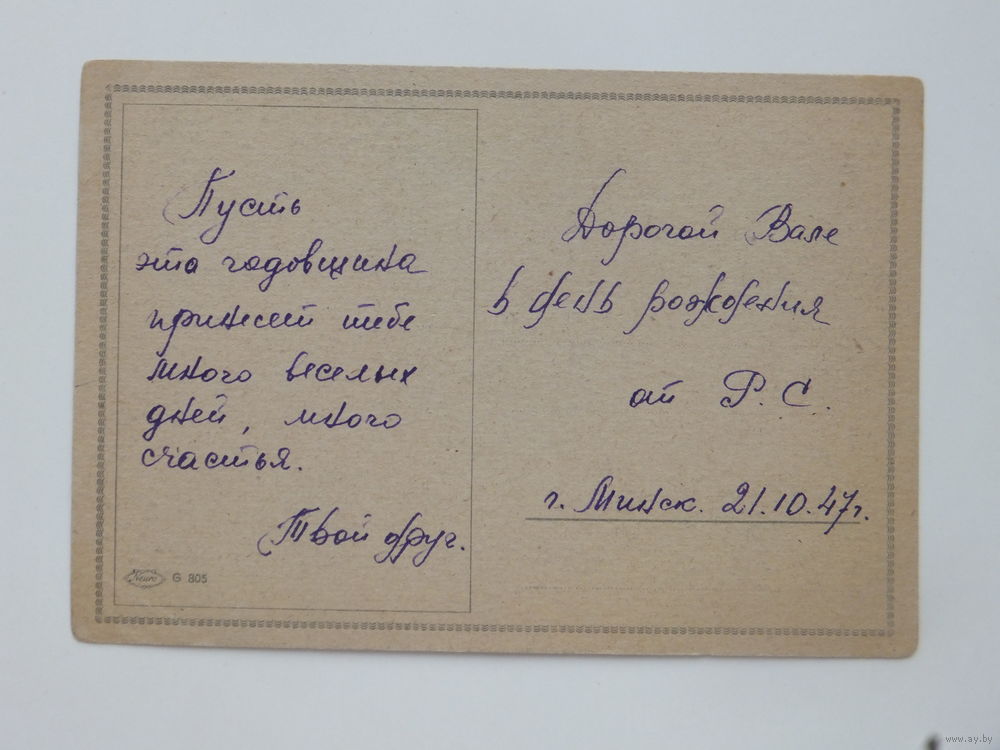 Пусть
эта годовщина
принесет тебе
много веселых
дней, много
счастья.
Твой друг.
Neuro G 805
Дорогой Вале
в день рождения
от Р. С.
г. Минск. 21.10.47г.
www.ay.by